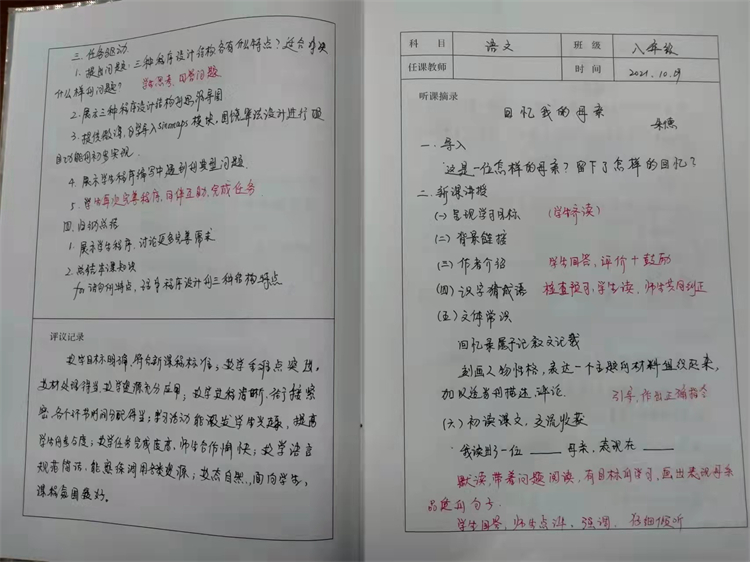 三. 任务驱动
1. 提出问题: 三种程序设计结构各有什么特点? 适合解决
什么样的问题? 学生思考, 回答问题
2. 展示三种程序设计结构的思维导图
3. 提供微课, 自学导入sitemaps模块, 围绕算法设计进行项
目功能的初步实现.
4. 展示学生程序编写中遇到的典型问题.
5. 学生再次完善程序, 同伴互助, 完成任务
四. 归纳总结
1. 展示学生程序, 讨论还需完善需求
2. 总结本课知识
语句的特点, 程序设计的三种结构特点
评议记录
教学目标明确, 符合新课程标准; 教学重难点突出,
教材处理得当, 教学资源充分应用; 教学过程清晰, 衔接紧
密, 各个环节时间分配得当; 学习活动能激发学生兴趣, 提高
学生自主合度; 教学任务完成度高, 师生合作愉快; 教学语言
规范简洁, 能熟练调用各类资源; 教态自然, 面向学生,
课程氛围良好.
科 目 语文 班 级 八年级
任课教师 时 间 2021.10.29
听课摘录
回忆我的母亲
朱德
一. 导入
这是一位怎样的母亲? 留下了怎样的回忆?
二. 新课讲授
(一) 呈现学习目标 (学生齐读)
(二) 背景链接
(三) 作者介绍 学生回答, 评价+鼓励
(四) 识字猜成语 检查预习, 学生读, 师生共同纠正
(五) 文体常识
回忆录属于记叙文记载
刻画人物性格, 表达一个主题的材料组织起来,
加以适当的描述评论. 引导, 作出正确指令
(六) 初读课文, 交流收获
我读到了一位 ____ 母亲, 表现在 ____
默读, 带着问题阅读, 有目标的学习, 画出表现母亲
品质的句子.
学生回答, 师生点评, 强调, 仔细倾听